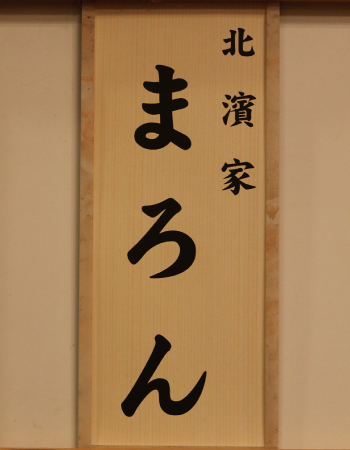 北濱家
まろん